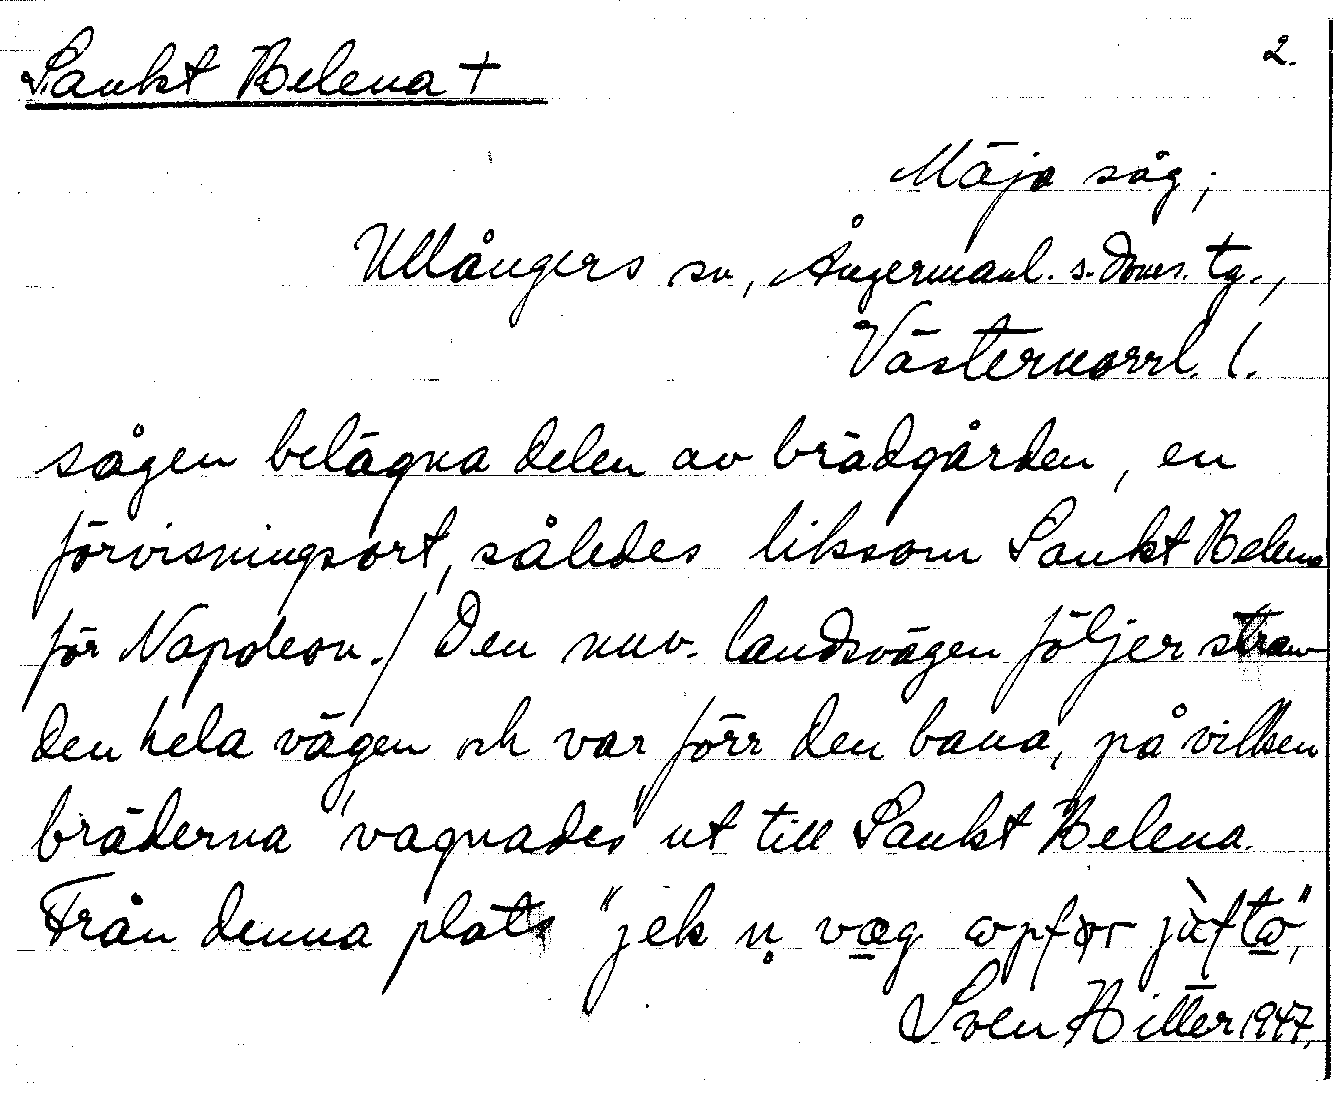 Sankt Helena +
2.
Mäja såg,
Ullångers sn, Ångermanl. s. doms. tg.,
Västernorrl. l.
sågen belägna delen av brädgården, en
förvisningsort, således liksom Sankt Helena
för Napoleon./ Den nuv. landsvägen följer stran-
den hela vägen och var förr den bana, på vilken
bräderna "vagnades" ut till Sankt Helena.
Från denna plats "jek n̥ væg
Sven 1947.